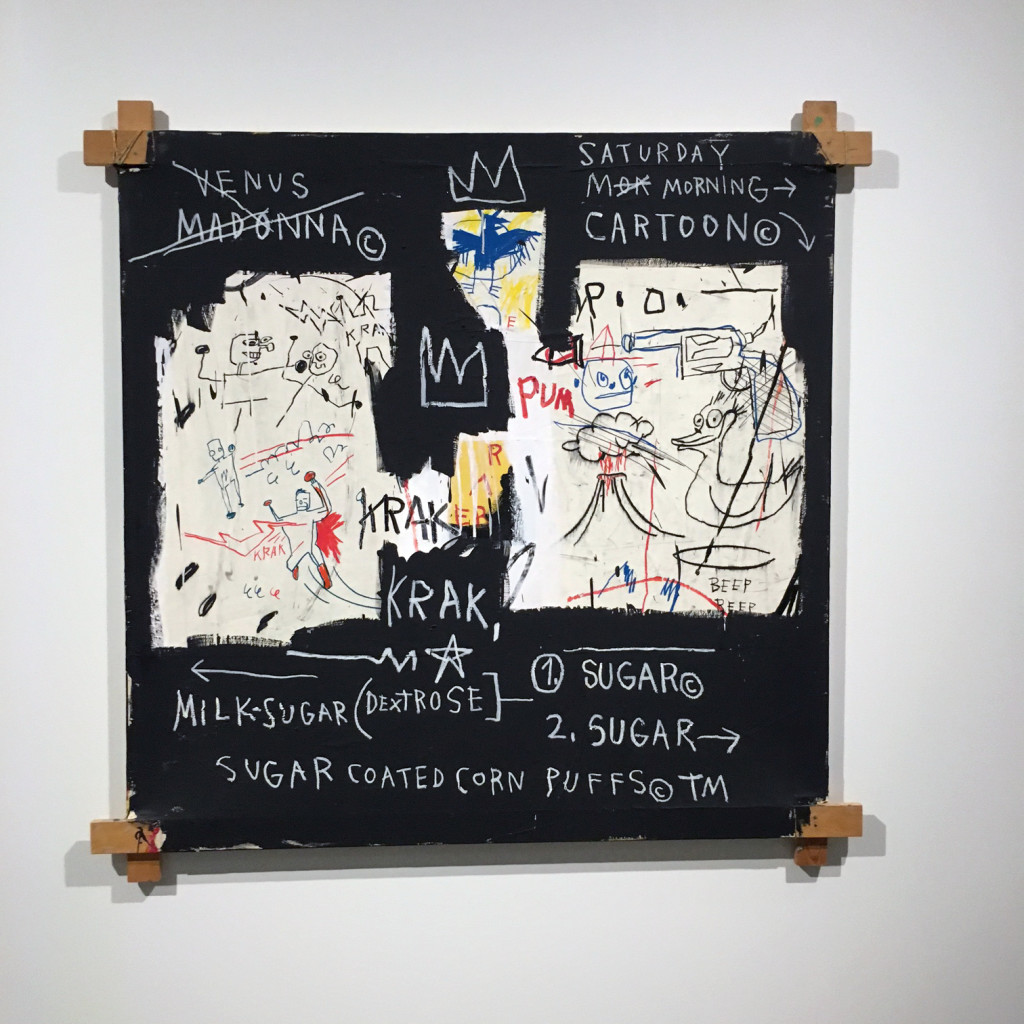 VENUS
MADONNA©
SATURDAY
MON MORNING→
CARTOON©
KRAK
R.O.
E
PUM
R
KRAK
ER
KRAK
BEEP
BEEP
KRAK,
MILK-SUGAR (DEXTROSE]
1. SUGAR©
2. SUGAR→
SUGAR COATED CORN PUFFS© TM